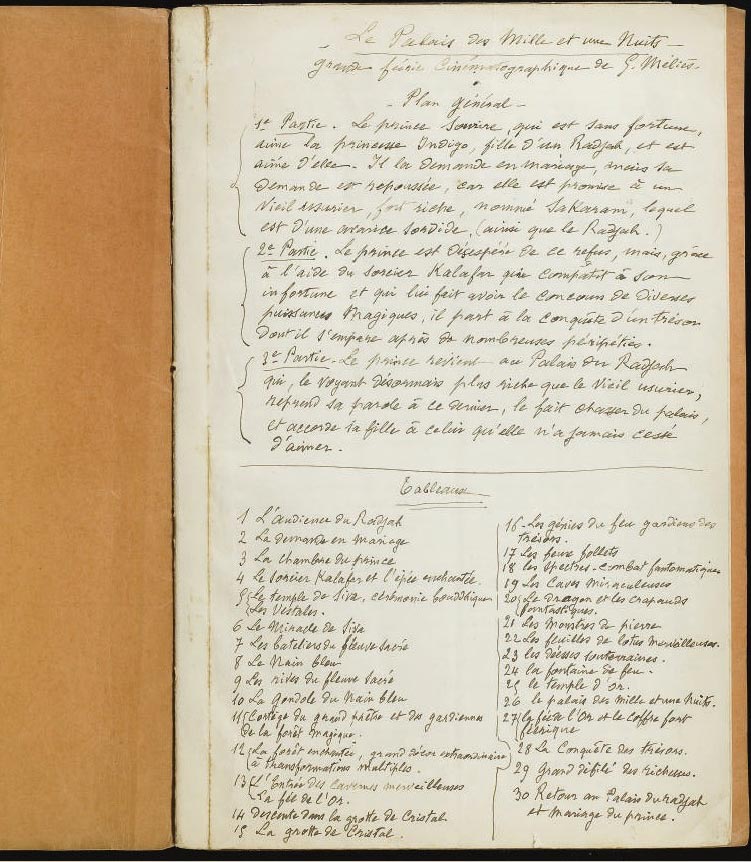 Le Palais des Mille et une Nuits
grande féerie Cinématographique de G. Méliès
- Plan général -
1e Partie. Le prince Sourire, qui est sans fortune,
aime la princesse Indigo, fille d'un Radjah, et est
aimé d'elle. Il la demande en mariage, mais sa
demande est repoussée, car elle est promise à un
vieil usurier, fort riche, nommé Sakaram, lequel
est d'une avarice sordide, (ainsi que le Radjah.)
2e Partie. Le prince est désespéré de ce refus, mais, grâce
à l'aide du sorcier Kalafar qui compatit à son
infortune et qui lui fait avoir le concours de diverses
puissances magiques, il part à la conquête d'un trésor
dont il s'empare après de nombreuses péripéties.
3e Partie. Le prince revient au Palais du Radjah
qui, le voyant désormais plus riche que le vieil usurier,
reprend sa parole à ce dernier, le fait chasser du palais,
et accorde sa fille à celui qu'elle n'a jamais cessé
d'aimer.
Tableaux
1 L'audience du Radjah
2 La demande en mariage
3 La chambre du prince
4 Le sorcier Kalafar et l'épée enchantée.
5 Le temple de Siva, cérémonie bouddhique
Les Vestales.
6 Le Miracle de Siva
7 Les bateliers du fleuve sacré
8 Le Nain bleu
9 Les rives du fleuve sacré
10 La Gondole du Nain bleu
11 Cortège du grand prêtre et des gardiennes
de la forêt magique.
12 La forêt enchantée, grand décor extraordinaire
à transformations multiples.
13 L'Entrée des cavernes merveilleuses
La fée de l'Or.
14 Descente dans la grotte de Cristal
15 La grotte de Cristal.
16 - Les génies du feu gardiens des
trésors.
17 Les feux follets
18 les spectres - combat fantomatique
19 Les Caves miraculeuses
20 Le dragon et les crapauds
fantastiques.
21 Les monstres de pierre
22 Les feuilles de lotus merveilleuses.
23 les déesses souterraines.
24 la fontaine de feu.
25 le temple d'Or.
26 le palais des Mille et une Nuits.
27 la fée de l'Or et le coffre fort
féerique
28 La Conquête des trésors.
29 Grand défilé des richesses.
30 Retour au Palais du radjah
et mariage du prince.